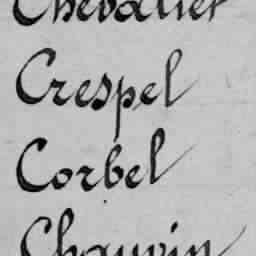 Chevalier
Crespel
Corbel
Chauvin